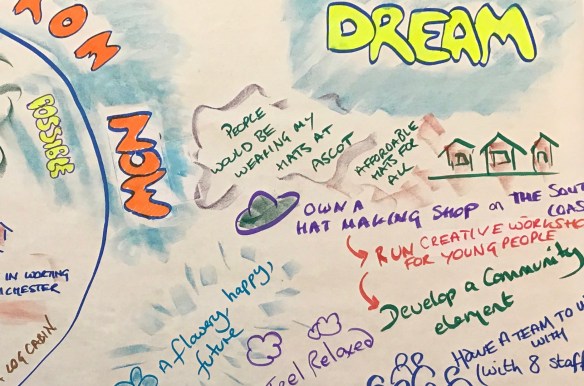 DREAM
POSSIBLE
PEOPLE
WOULD BE
WEARING MY
HATS AT
ASCOT
AFFORDABLE
HATS FOR
ALL
OWN A
HAT MAKING SHOP on THE
RUN CREATIVE
FOR YOUNG PEOPLE
Develop a Community
element
IN WORTING
LOG CABIN
A flowery happy,
future
Feel Relaxed
HAVE A TEAM TO
WITH
(with 8